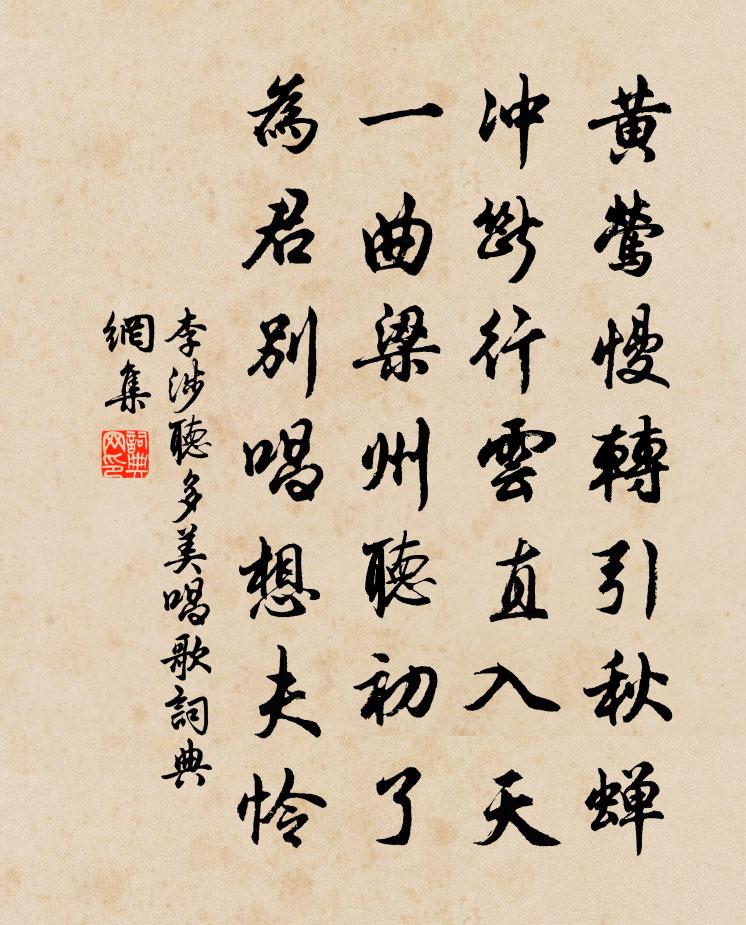 黃鶯慢轉引秋蟬
冲斷行雲直入天
一曲梁州聽初了
為君別唱想夫憐
李涉聽多美唱歌詞典
網集
詞典
网印